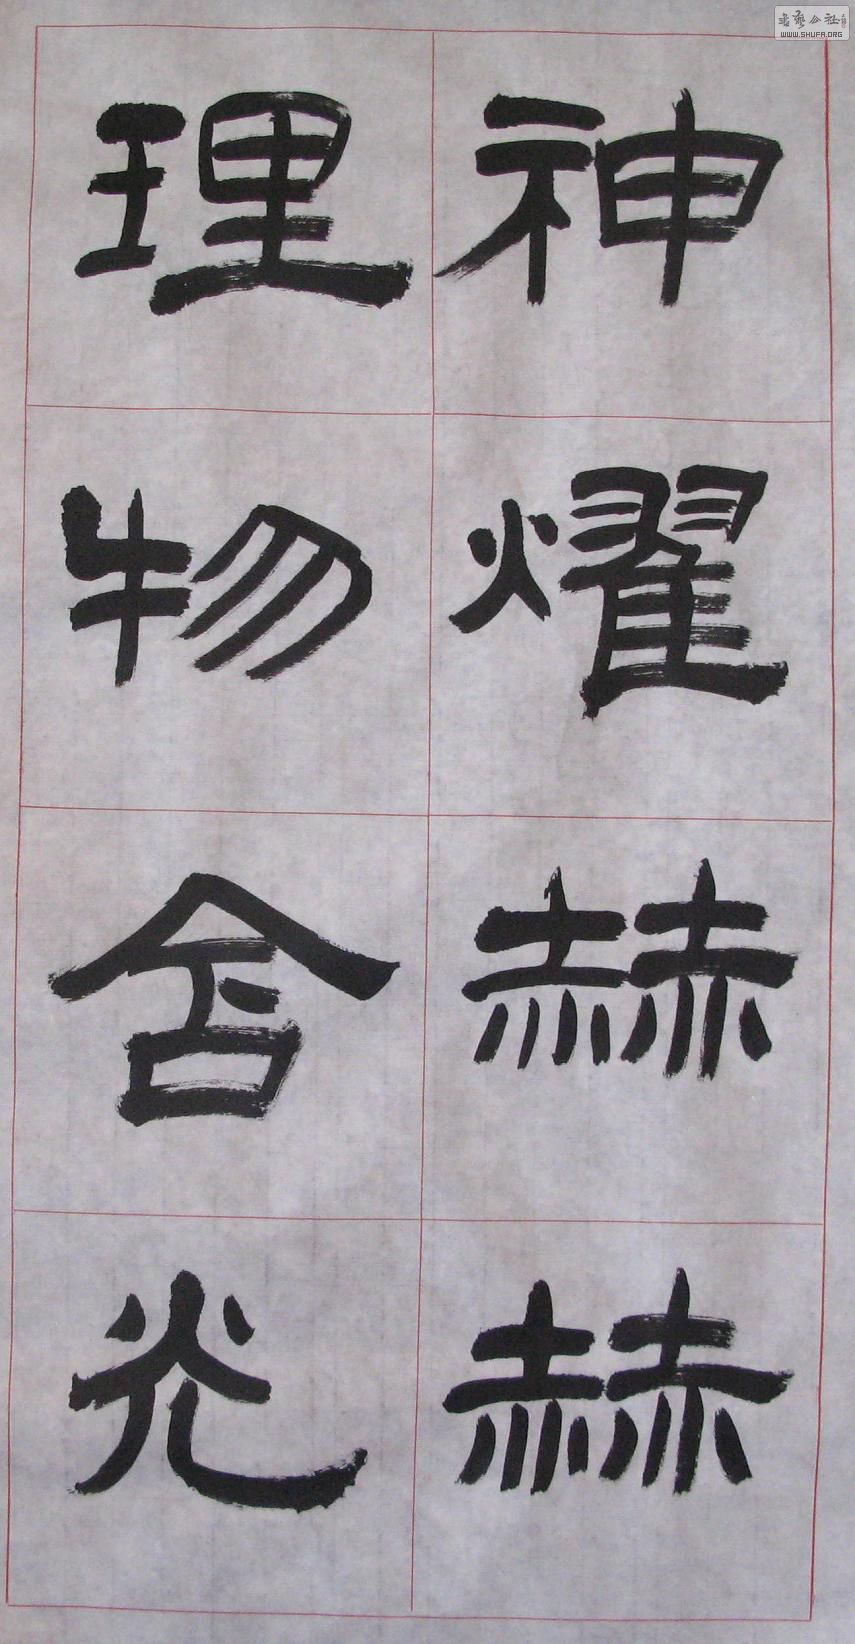 神燿赫赫
理物含光
WWW.SHUFA.ORG